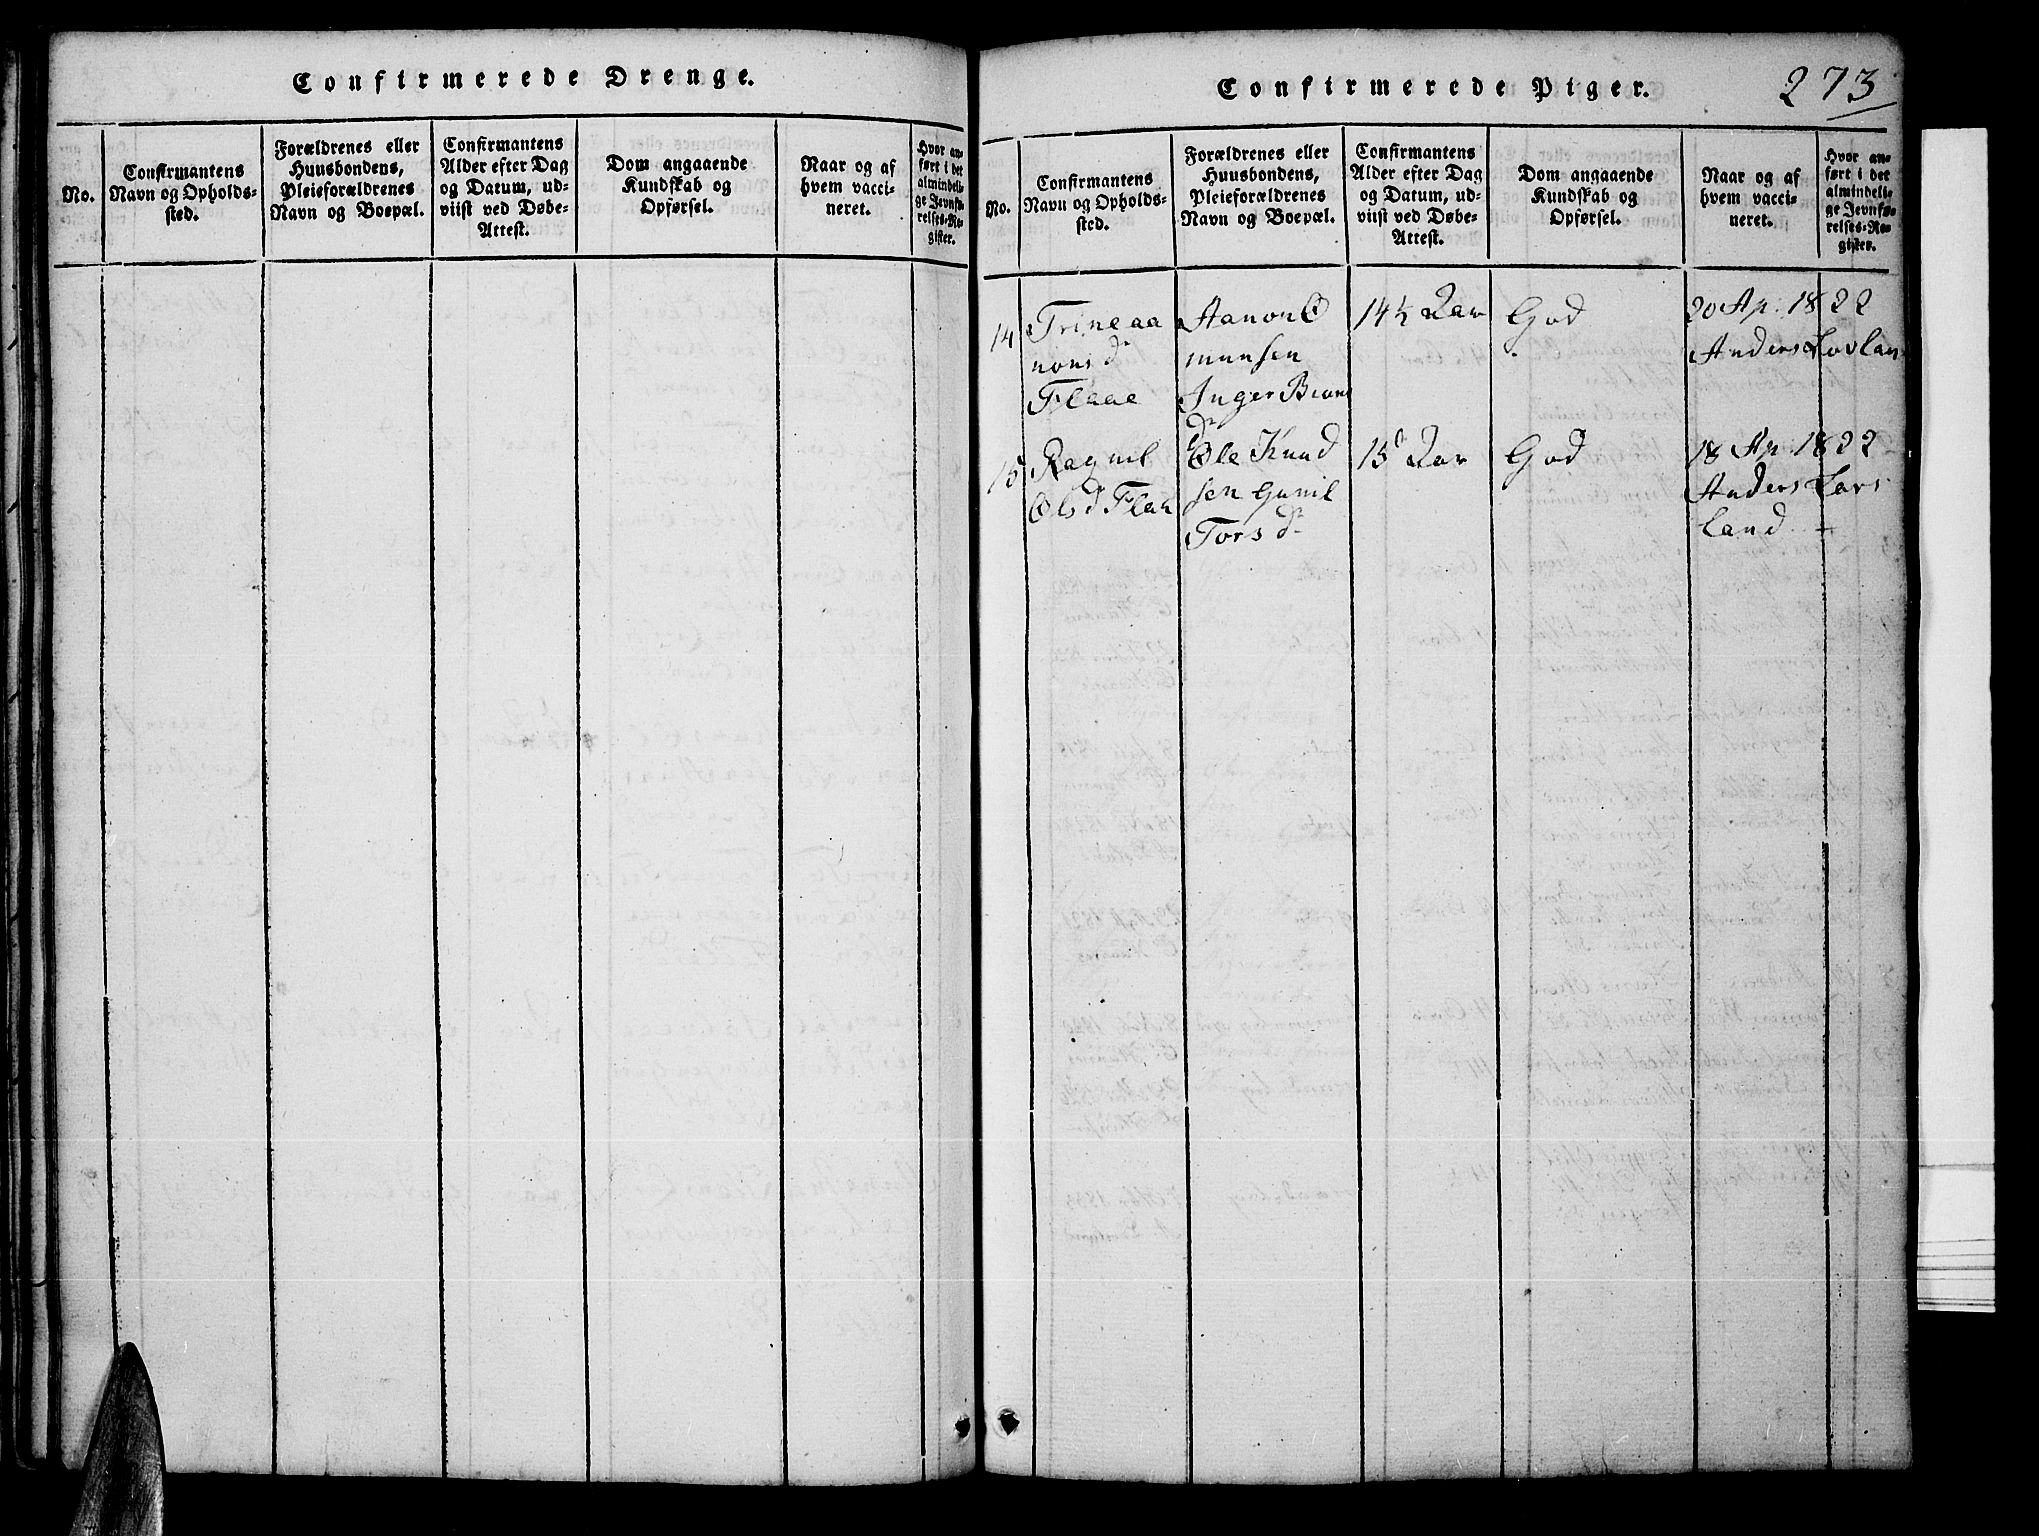 Confirmerede Drenge.
No.
Confirmantens
Navn og Opholds-
sted.
Forældrenes eller
Huusbondens,
Pleieforældrenes
Navn og Boepæl.
Confirmantens
Alder efter Dag
og Datum, ud-
viist ved Døbe-
Attest.
Dom angaaende
Kundskab og
Opførsel.
Naar og af
hvem vacci-
neret.
Hvor an-
ført i det
almindeli-
ge Jevnfø-
relses-Re-
gister.
Confirmerede Piger.
273
No.
Confirmantens
Navn og Opholds-
sted.
Forældrenes eller
Huusbondens,
Pleieforældrenes
Navn og Boepæl.
Confirmantens
Alder efter Dag
og Datum, ud-
viist ved Døbe-
Attest.
Dom angaaende
Kundskab og
Opførsel.
Naar og af
hvem vacci-
neret.
Hvor an-
ført i det
almindeli-
ge Jevnfø-
relses-Re-
gister.
14
Trine Aa
nons d
Flaae
Aanon O
munsen
Inger Biøns
d
14½ Aar
God
20 Ap: 1822
Anders Lovlan
15
Ragnil
Ols d Flak
Ole Knud
sen Gunil
Tors d
15 Aar
God
18 Ap: 1822
Anders
land